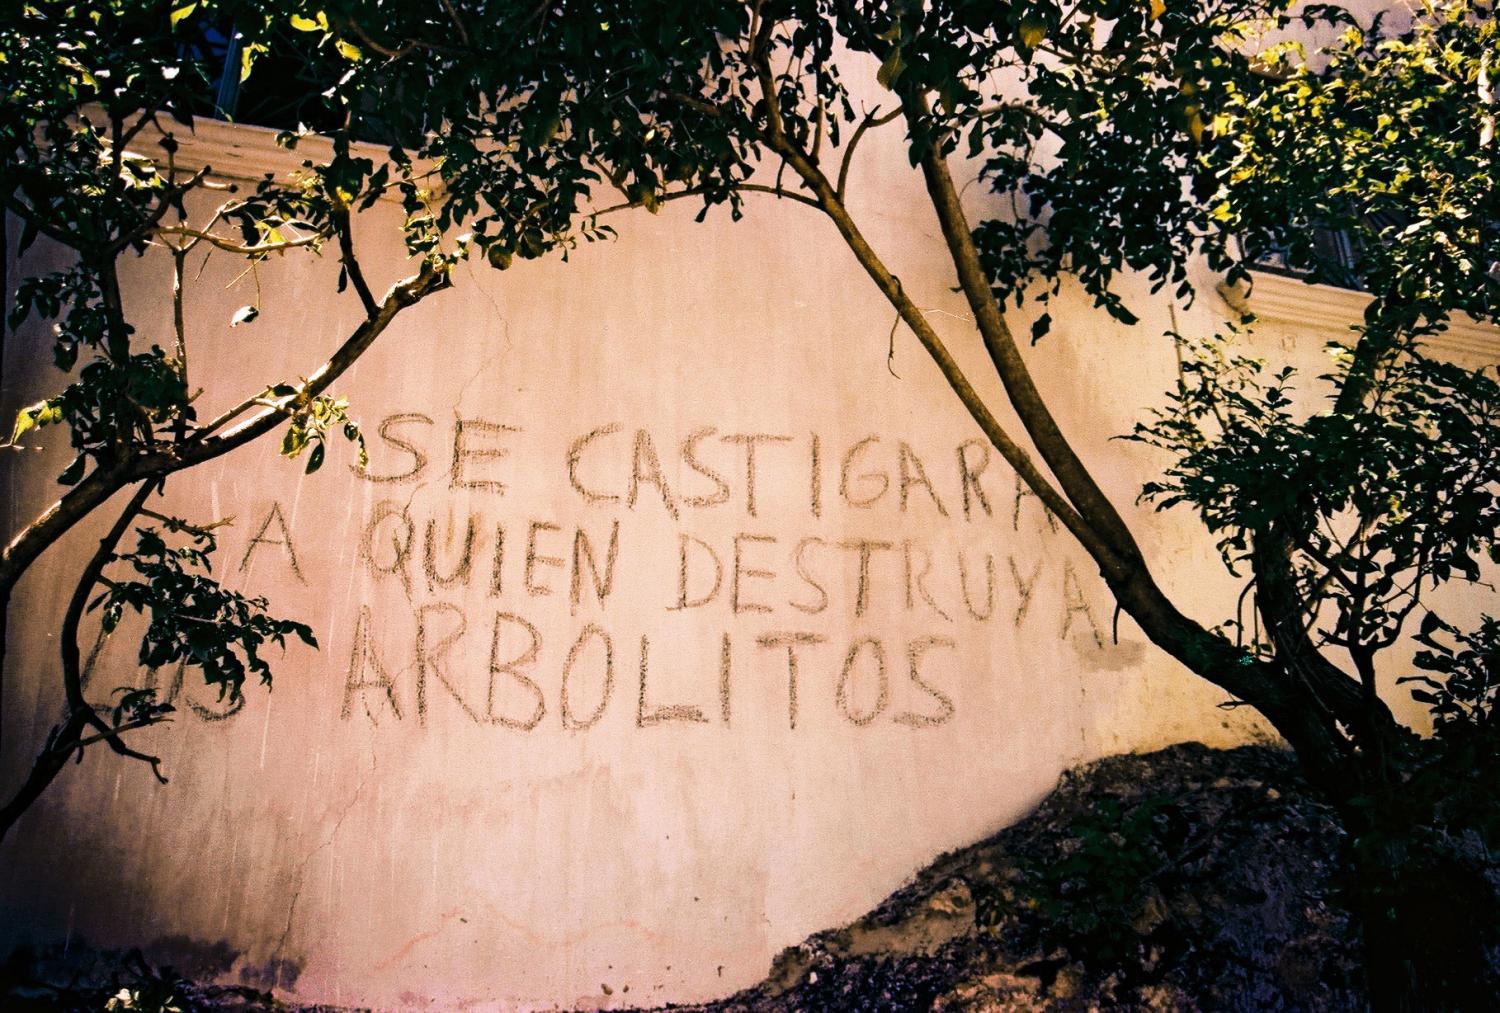 SE CASTIGARA
A QUIEN DESTRUYA
LOS ARBOLITOS